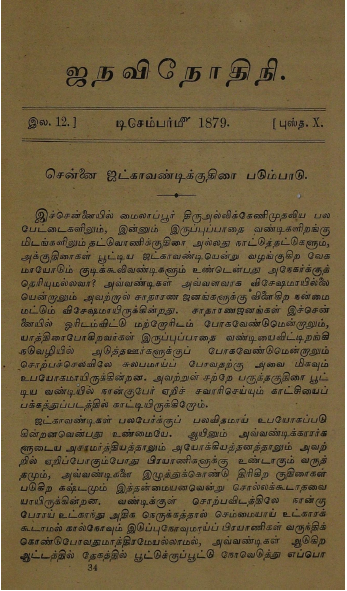 ஜநவிநோதினி.
இல. 12.] டிசெம்பர்மீ 1879. [புஸ்த. X.
சென்னை ஜட்காவண்டிக்குதிரை படும்பாடு.
இச்சென்னையில் மைலாப்பூர் திருஅல்லிக்கேணிமுதலிய பல
பேட்டைகளிலும், இன்னும் இருப்புப்பாதை வண்டிகளிறங்கு
மிடங்களிலும் தட்டுவாணிக்குதிரை அல்லது காட்டுத்தட்டுகளும்,
அக்குதிரைகள் பூட்டிய ஜட்காவண்டியென்று வழங்கிற வேக
மாயோடும் குடிக்கூலிவண்டிகளும் உண்டென்பது அநேகர்க்குத்
தெரியுமல்லவா? அவ்வண்டிகள் அவ்வளவாக விசேஷமாயில்லை
யென்றாலும் அவற்றால் சாதாரண ஜனங்களுக்கு விளைகிற நன்மை
மட்டும் விசேஷமாயிருக்கின்றது. சாதாரணஜனங்கள் இச்சென்
னையில் ஓரிடம்விட்டு மற்றோரிடம் போகவேண்டுமென்றாலும்,
யாத்திரைபோகிறவர்கள் இருப்புப்பாதை வண்டியைவிட்டிறங்கி
நடுவழியில் அடுத்தஊர்களுக்குப் போகவேண்டுமென்றாலும்
சொற்பச்செலவிலே சுலபமாய்ப் போவதற்கு அவை மிகவும்
உபயோகமாயிருக்கின்றன. அவற்றுள் சற்றே பருத்தகுதிரை பூட்
டிய வண்டியில் நான்குபேர் ஏறிச் சவாரிசெய்யும் காட்சியைப்
பக்கத்துப்படத்தில் காட்டியிருக்கிறோம்.
ஜட்காவண்டிகள் பலபேர்க்குப் பலவிதமாய் உபயோகப்படு
கின்றனவென்பது உண்மையே. ஆயினும் அவ்வண்டிக்காரர்க
ளுடைய அசாமர்த்தியத்தாலும் அயோக்கியத்தனத்தாலும் அவற்
றில் ஏறிப்போகும்போது பிரயாணிகளுக்கு உண்டாகும் வருத்
தமும், அவ்வண்டிகளை இழுத்துக்கொண்டு திரிகிற குதிரைகள்
படுகிற கஷ்டமும் இத்தன்மையனவென்று சொல்லக்கூடாதவை
யாயிருக்கின்றன. வண்டிக்குள் சொற்பவிடத்திலே நான்கு
பேராய் உட்கார்ந்து அதிக நெருக்கத்தால் செம்மையாய் உட்காரக்
கூடாமல் கால்நோவும் இடுப்புநோவுமாய்ப் பிரயாணிகள் வருத்திக்
கொண்டுபோவதுமாத்திரமேயல்லாமல், அவ்வண்டிகள் ஆடுகிற
ஆட்டத்தில் தேகத்தில் பூட்டுக்குப்பூட்டு நோவெடுத்து எப்போ
34